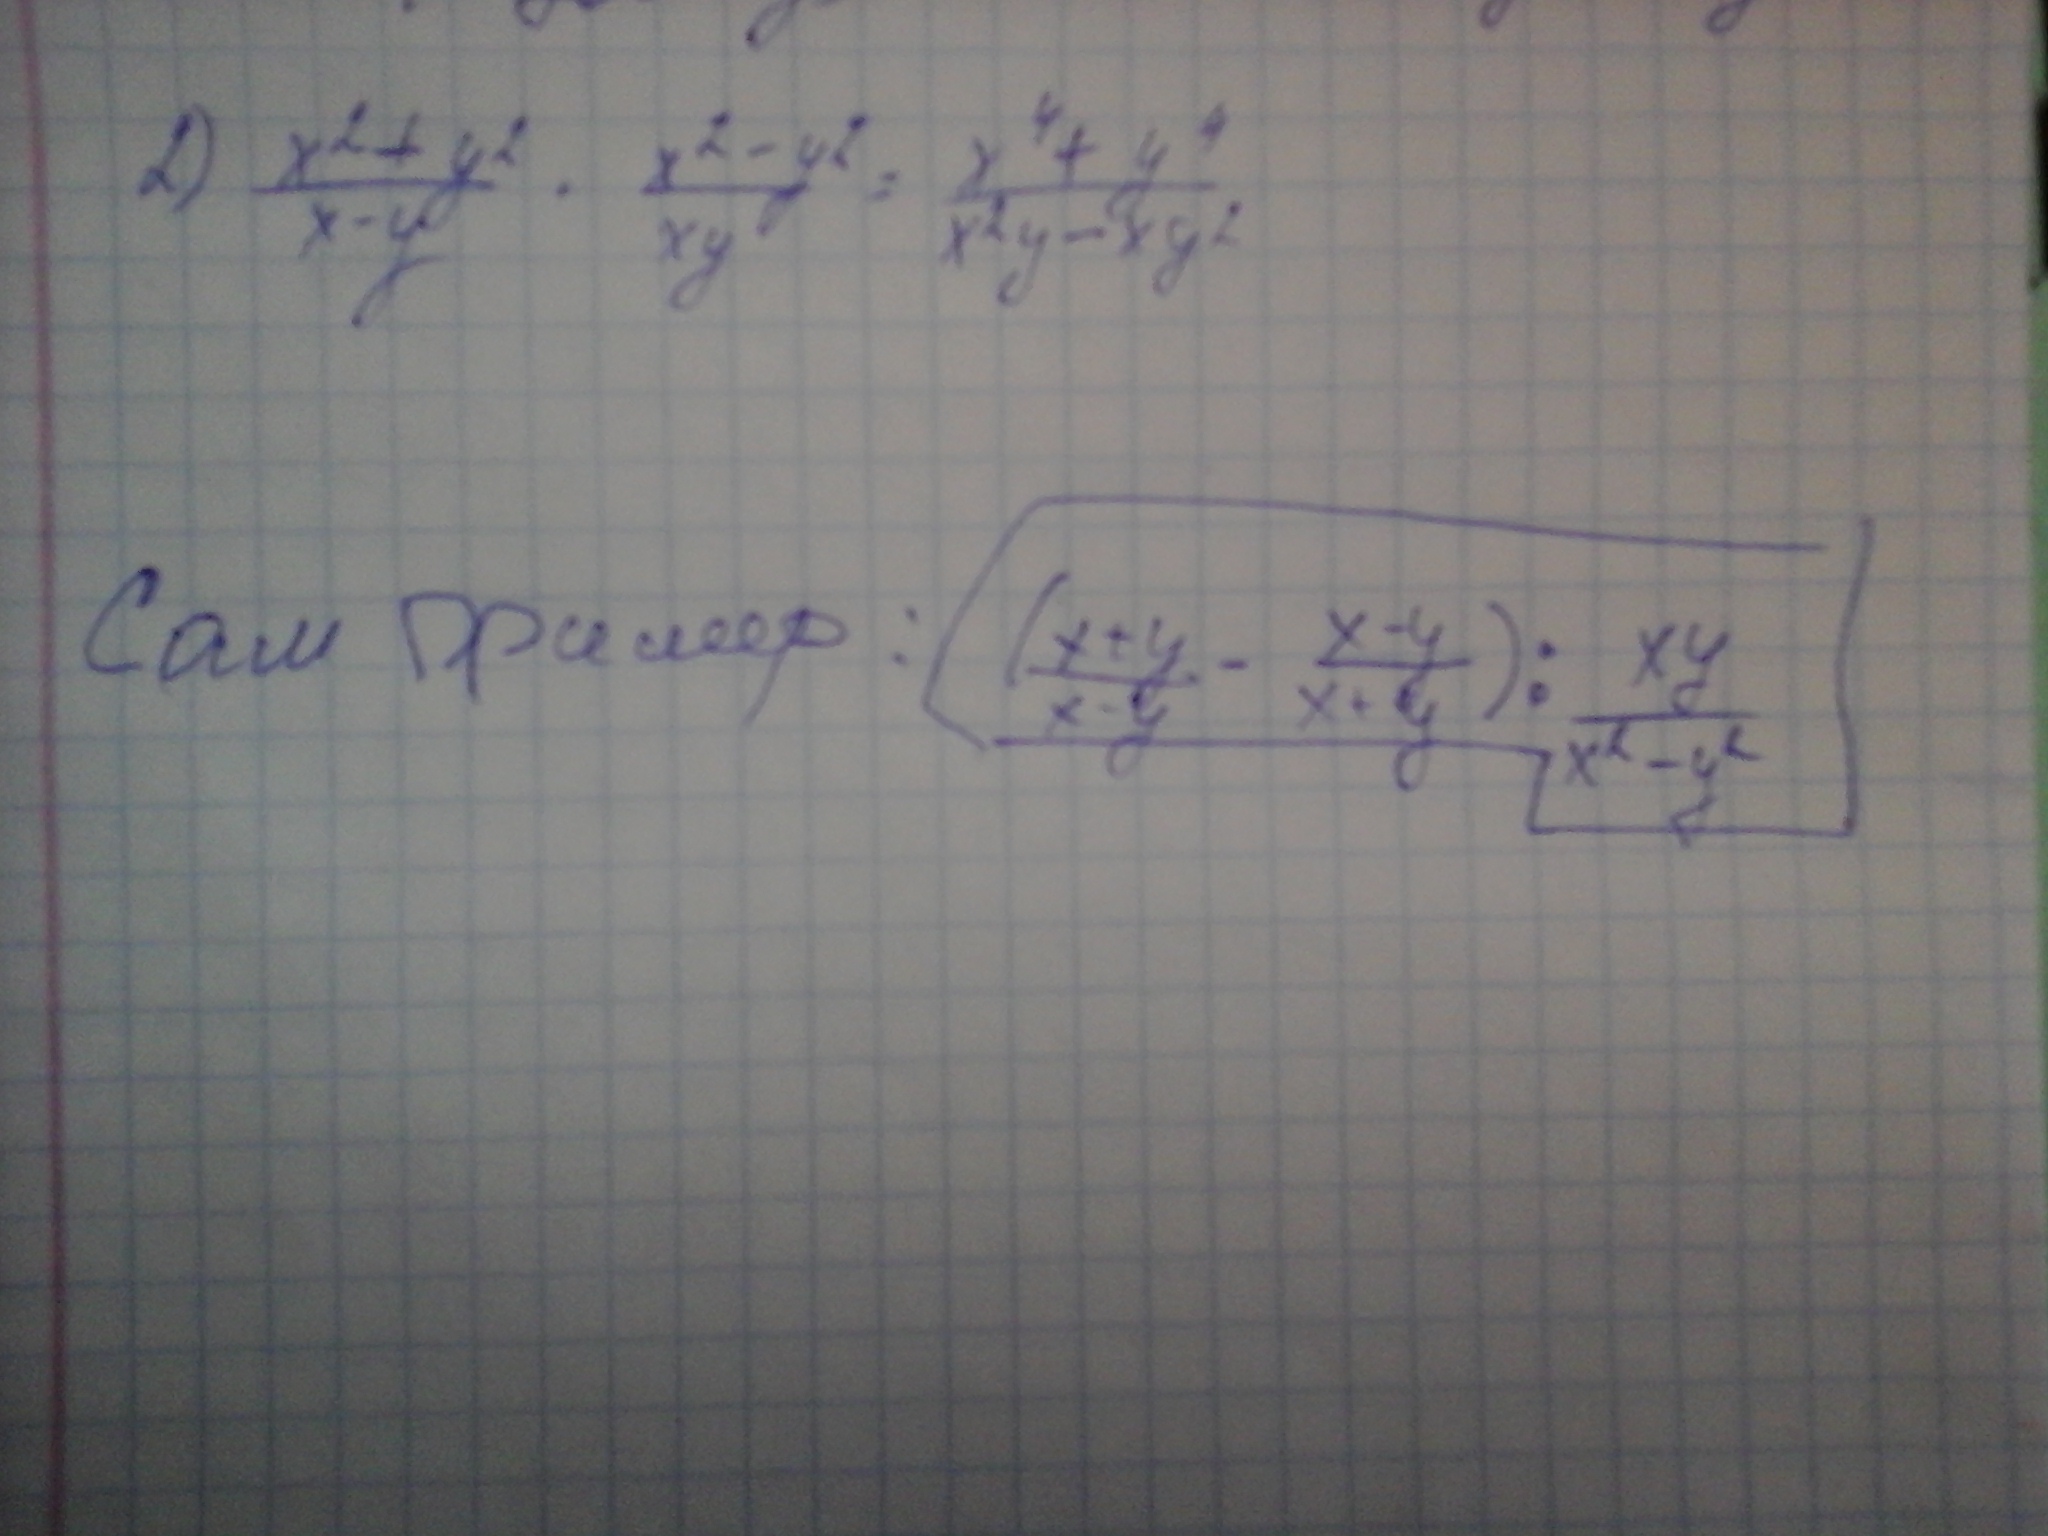 2) (x²+y²)/(x-y) · (x²-y²)/(xy) = (x⁴+y⁴)/(x²y-xy²)
Сам пример: ((x+y)/(x-y) - (x-y)/(x+y)) : (xy)/(x²-y²)